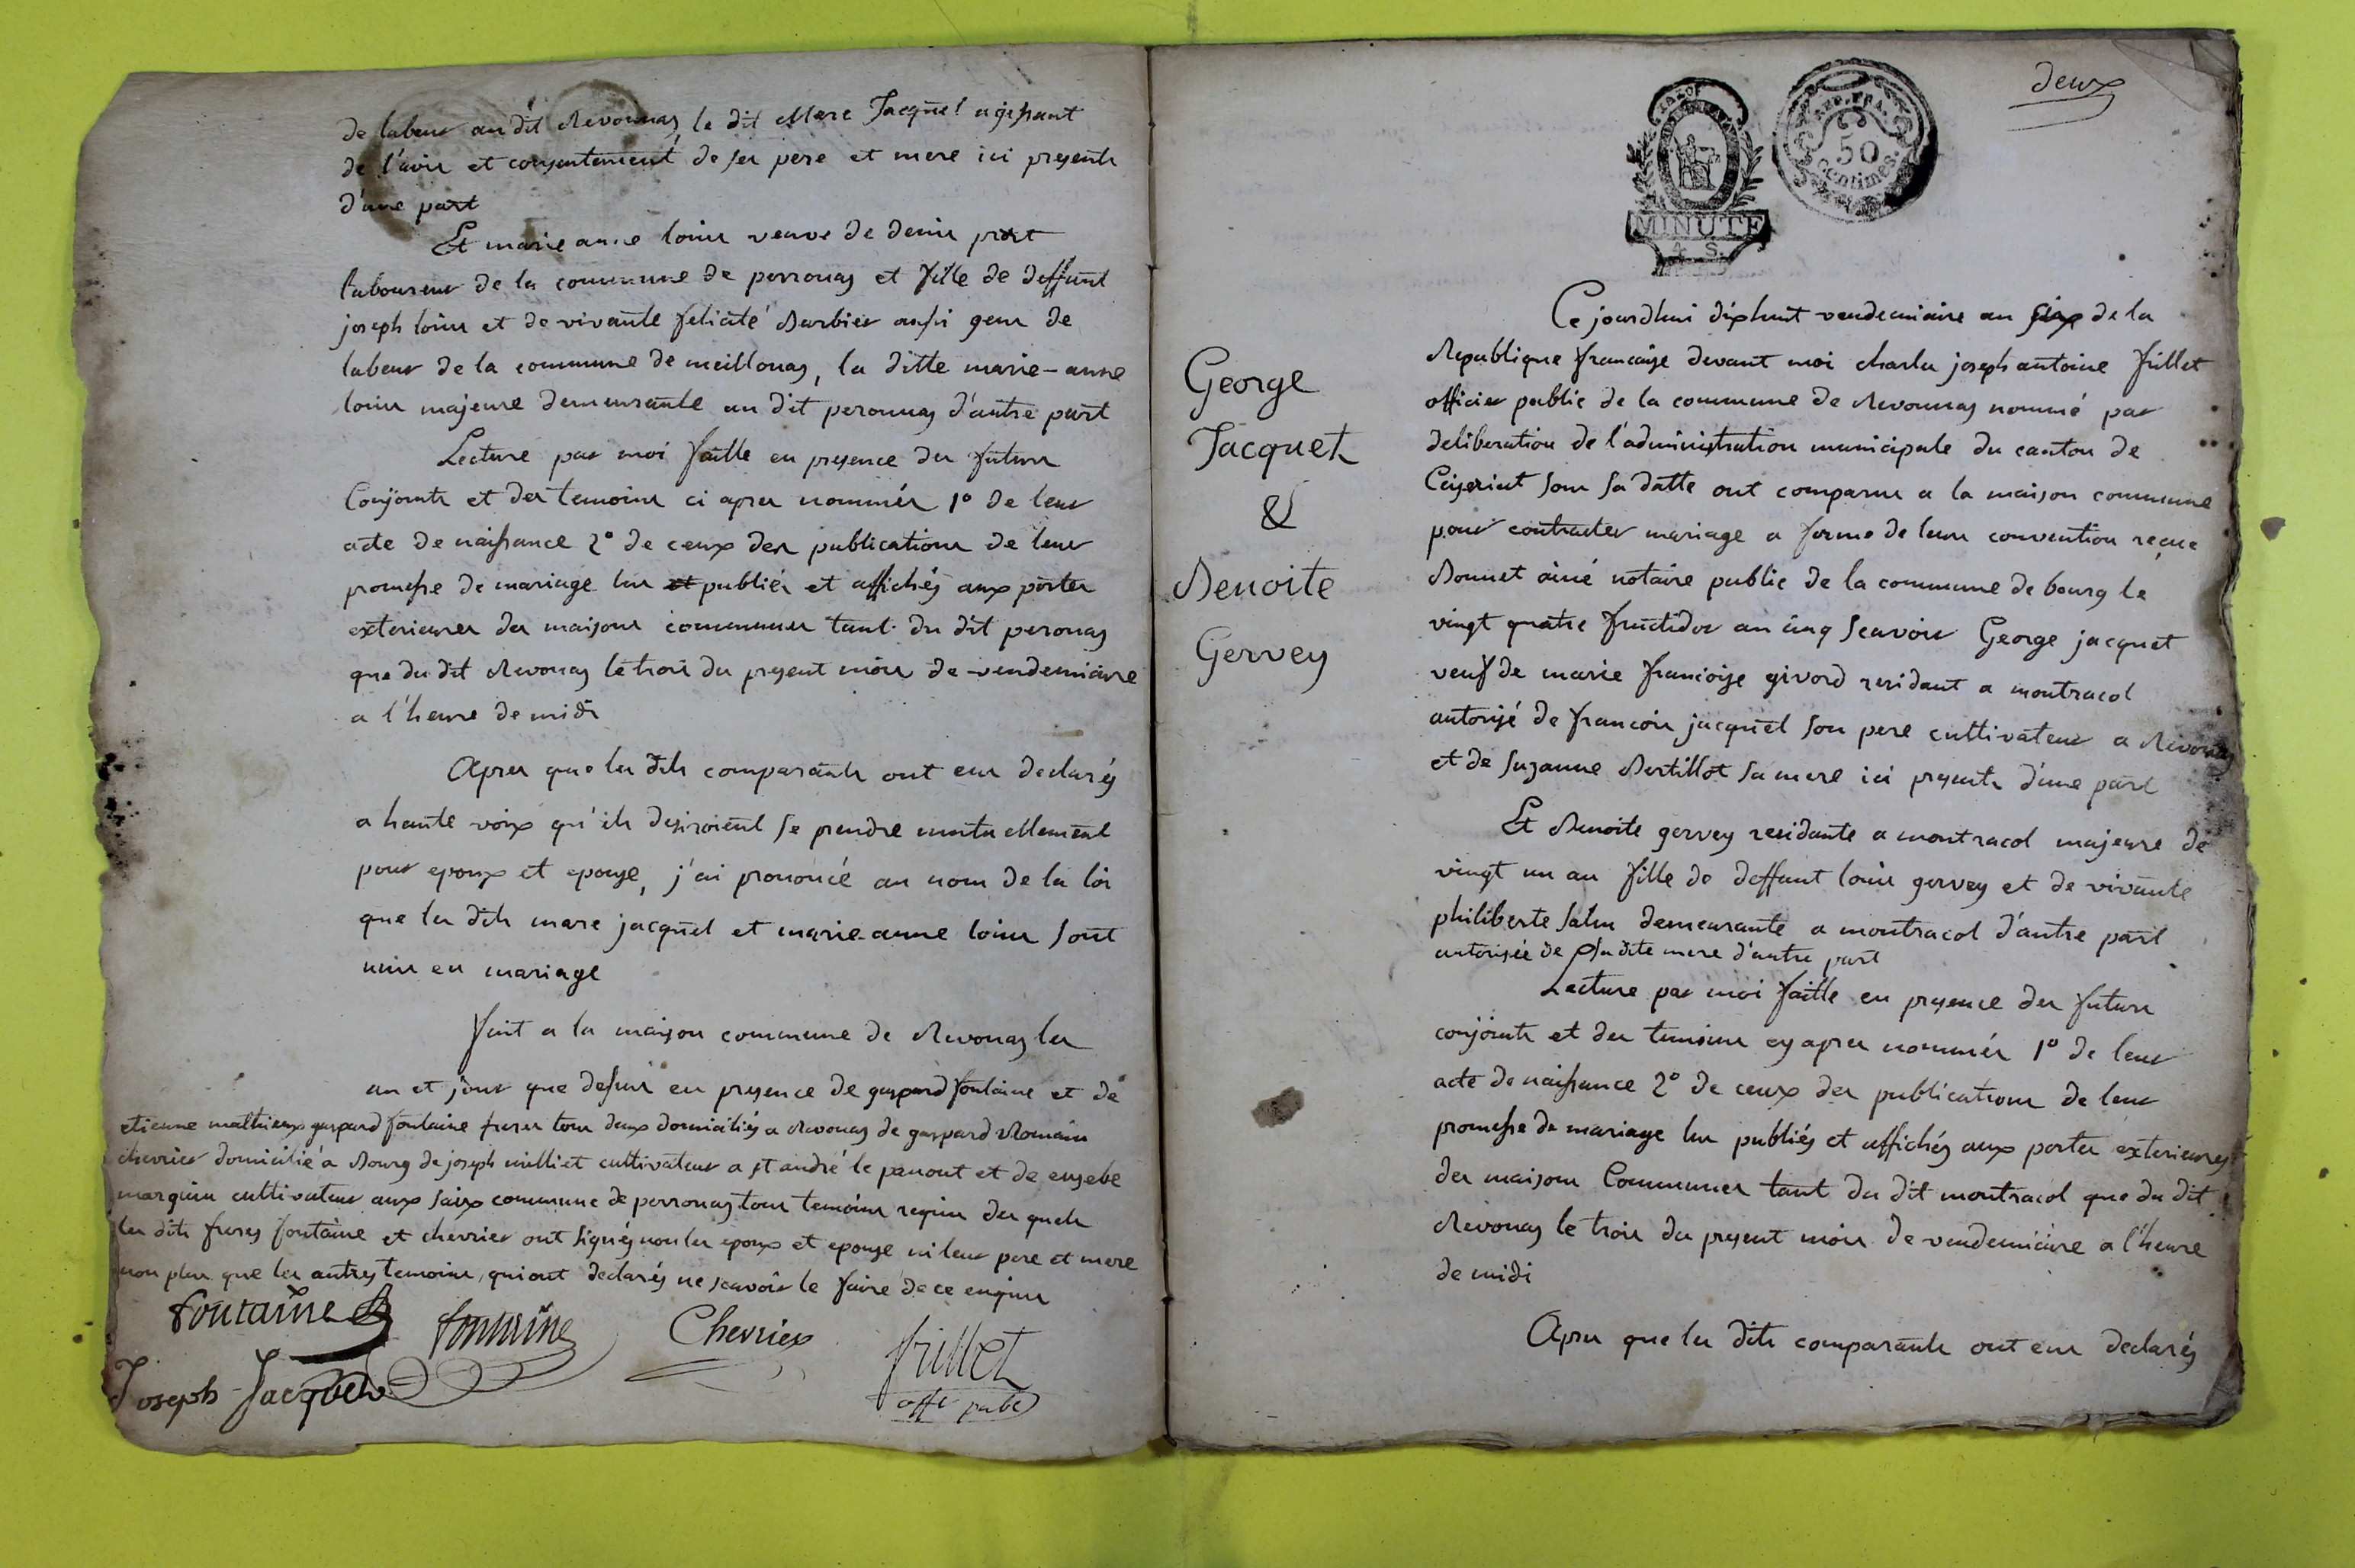 de labeur au dit Revonnas, le dit Marc Jacquet agissant
de l'avis et consentement de ses pere et mere ici presents
d'une part
Et marie anne loius veuve de denis prost
laboureur de la commune de perronas et fille de deffunt
joseph loius et de vivante felicité Barbier aussi gens de
labeur de la commune de meillonas, la ditte marie-anne
loius majeure demeurante au dit peronnas d'autre part
Lecture par moi faitte en presence des futurs
Conjoints et des temoins ci apres nommés 1° de leur
acte de naissance 2° de ceux des publications de leur
promesse de mariage lus et publiés et affichés aux portes
exterieures des maisons communes tant du dit peronas
que du dit Revonas le trois du present mois de vendemiaire
a l'heure de midi
Apres que les dits comparants ont eus declarés
a haute voix qu'ils desiroient se prendre mutuellement
pour epoux et epouse, j'ai prononcé au nom de la loi
que les dits marc jacquet et marie-anne loius sont
unis en mariage
fait a la maison commune de Revonas les
an et jour que dessus en presence de gaspard fontaine et de
etienne mathieux gaspard fontaine freres tous deux domiciliés a Revonas de gaspard Romain
chevrier domicilié a Bourg de joseph milliet cultivateur a st andré le panout et de eusebe
marguin cultivateur aux saix commune de perronas tous temoins requis des quels
les dits freres fontaine et chevrier ont signés non les epoux et epouse ni leur pere et mere
non plus que les autres temoins, qui ont declarés ne scavoir le faire de ce enquis
fontaine
fontaine
Chevrier
frillet
offi public
Joseph Jacquet
deux
MINUTE
4 S.
REP. FRA.
50
Centimes.
George
Jacquet
&
Benoite
Gervey
Ce jourdhui dixhuit vendemiaire an six de la
Republique francaise devant moi charles joseph antoine frillet
officier public de la commune de Revonnas nommé par
deliberation de l'administration municipale du canton de
Ceyseriat sous sa datte ont comparus a la maison commune
pour contracter mariage a forme de leurs convention reçue
Bonnet ainé notaire public de la commune de bourg le
vingt quatre fructidor an cinq scavoir George jacquet
veuf de marie francoise givord residant a montracol
autorisé de francois jacquet son pere cultivateur a Revonas
et de suzanne Bertillot sa mere ici presents d'une part
Et Benoite gervey residante a montracol majeure de
vingt un an fille de deffunt louis gervey et de vivante
philiberte salus demeurante a montracol d'autre part
autorisée de sa dite mere d'autre part
Lecture par moi faitte en presence des futurs
conjoints et des temoins cy apres nommés 1° de leur
acte de naissance 2° de ceux des publications de leur
promesse de mariage lus publiés et affichés aux portes exterieures
des maisons Communes tant du dit montracol que du dit
Revonas le trois du present mois de vendemiaire a l'heure
de midi
Apres que les dits comparants ont eus declarés